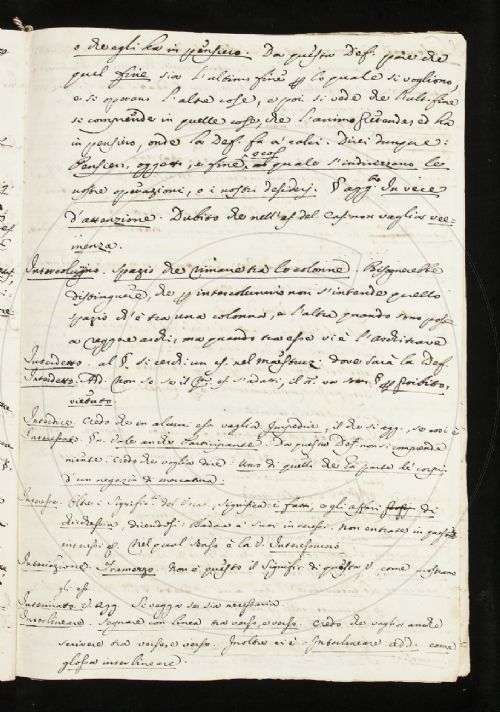 o che egli ha in pensiero. Da questa Def. pare che
quel fine sia l'ultimo fine per lo quale si vogliono,
e si operano l'altre cose, e poi si vede che tale fine
si comprende in quelle cose, che l'animo intende, ed ha
in pensiero, onde la Def. fa a calci. Direi dunque:
Pensieri, oggetti, e fine, o cose al quale s'indirizzano le
nostre operazioni, o i nostri desiderj. § agg. In vece
d'attenzione. Dubito che nell'es. del Cas. non vaglia vee-
menza.
Intercolunnio. Spazio che rimane tra le colonne. Bisognerebbe
distinguere, che per intercolunnio non s'intende quello
spazio ch'è tra una colonna, e l'altra quando sono poste
a reggere archi, ma quando tra esse vi è l'architrave
Interdetto. al §. si cerchi un es. nel Maestruz. dove sarà la Def.
Interdetto. Add. Non so se il es. s'adatti, il va per Proibito,
vietato.
Interdire. Credo che in alcuni es. vaglia Impedire, il che si agg. se così è
Interessato. Vale anche Partecipante. Da questa Def. non si comprende
niente. Credo che voglia dire: Uno di quelli che ha parte
d'un negozio di mercatura.
Interesse. Oltre i signific. del Voca. significa i fatti, o gli affari di
chicchessia, dicendosi: Badare a' suoi interessi. Non entrate in
interessi &c. Nel qual senso è la V. Interessuccio
Interiezione. Tramezzo. Non è questo il signific. di questa V. come mostrano
gli es.
V. agg. Si vegga se sia necessaria
Interlineare. Segnare con linea tra verso, e verso. Credo che vaglia anche
scrivere tra verso, e verso. Inoltre vi è Interlineare add. come
glossa interlineare.